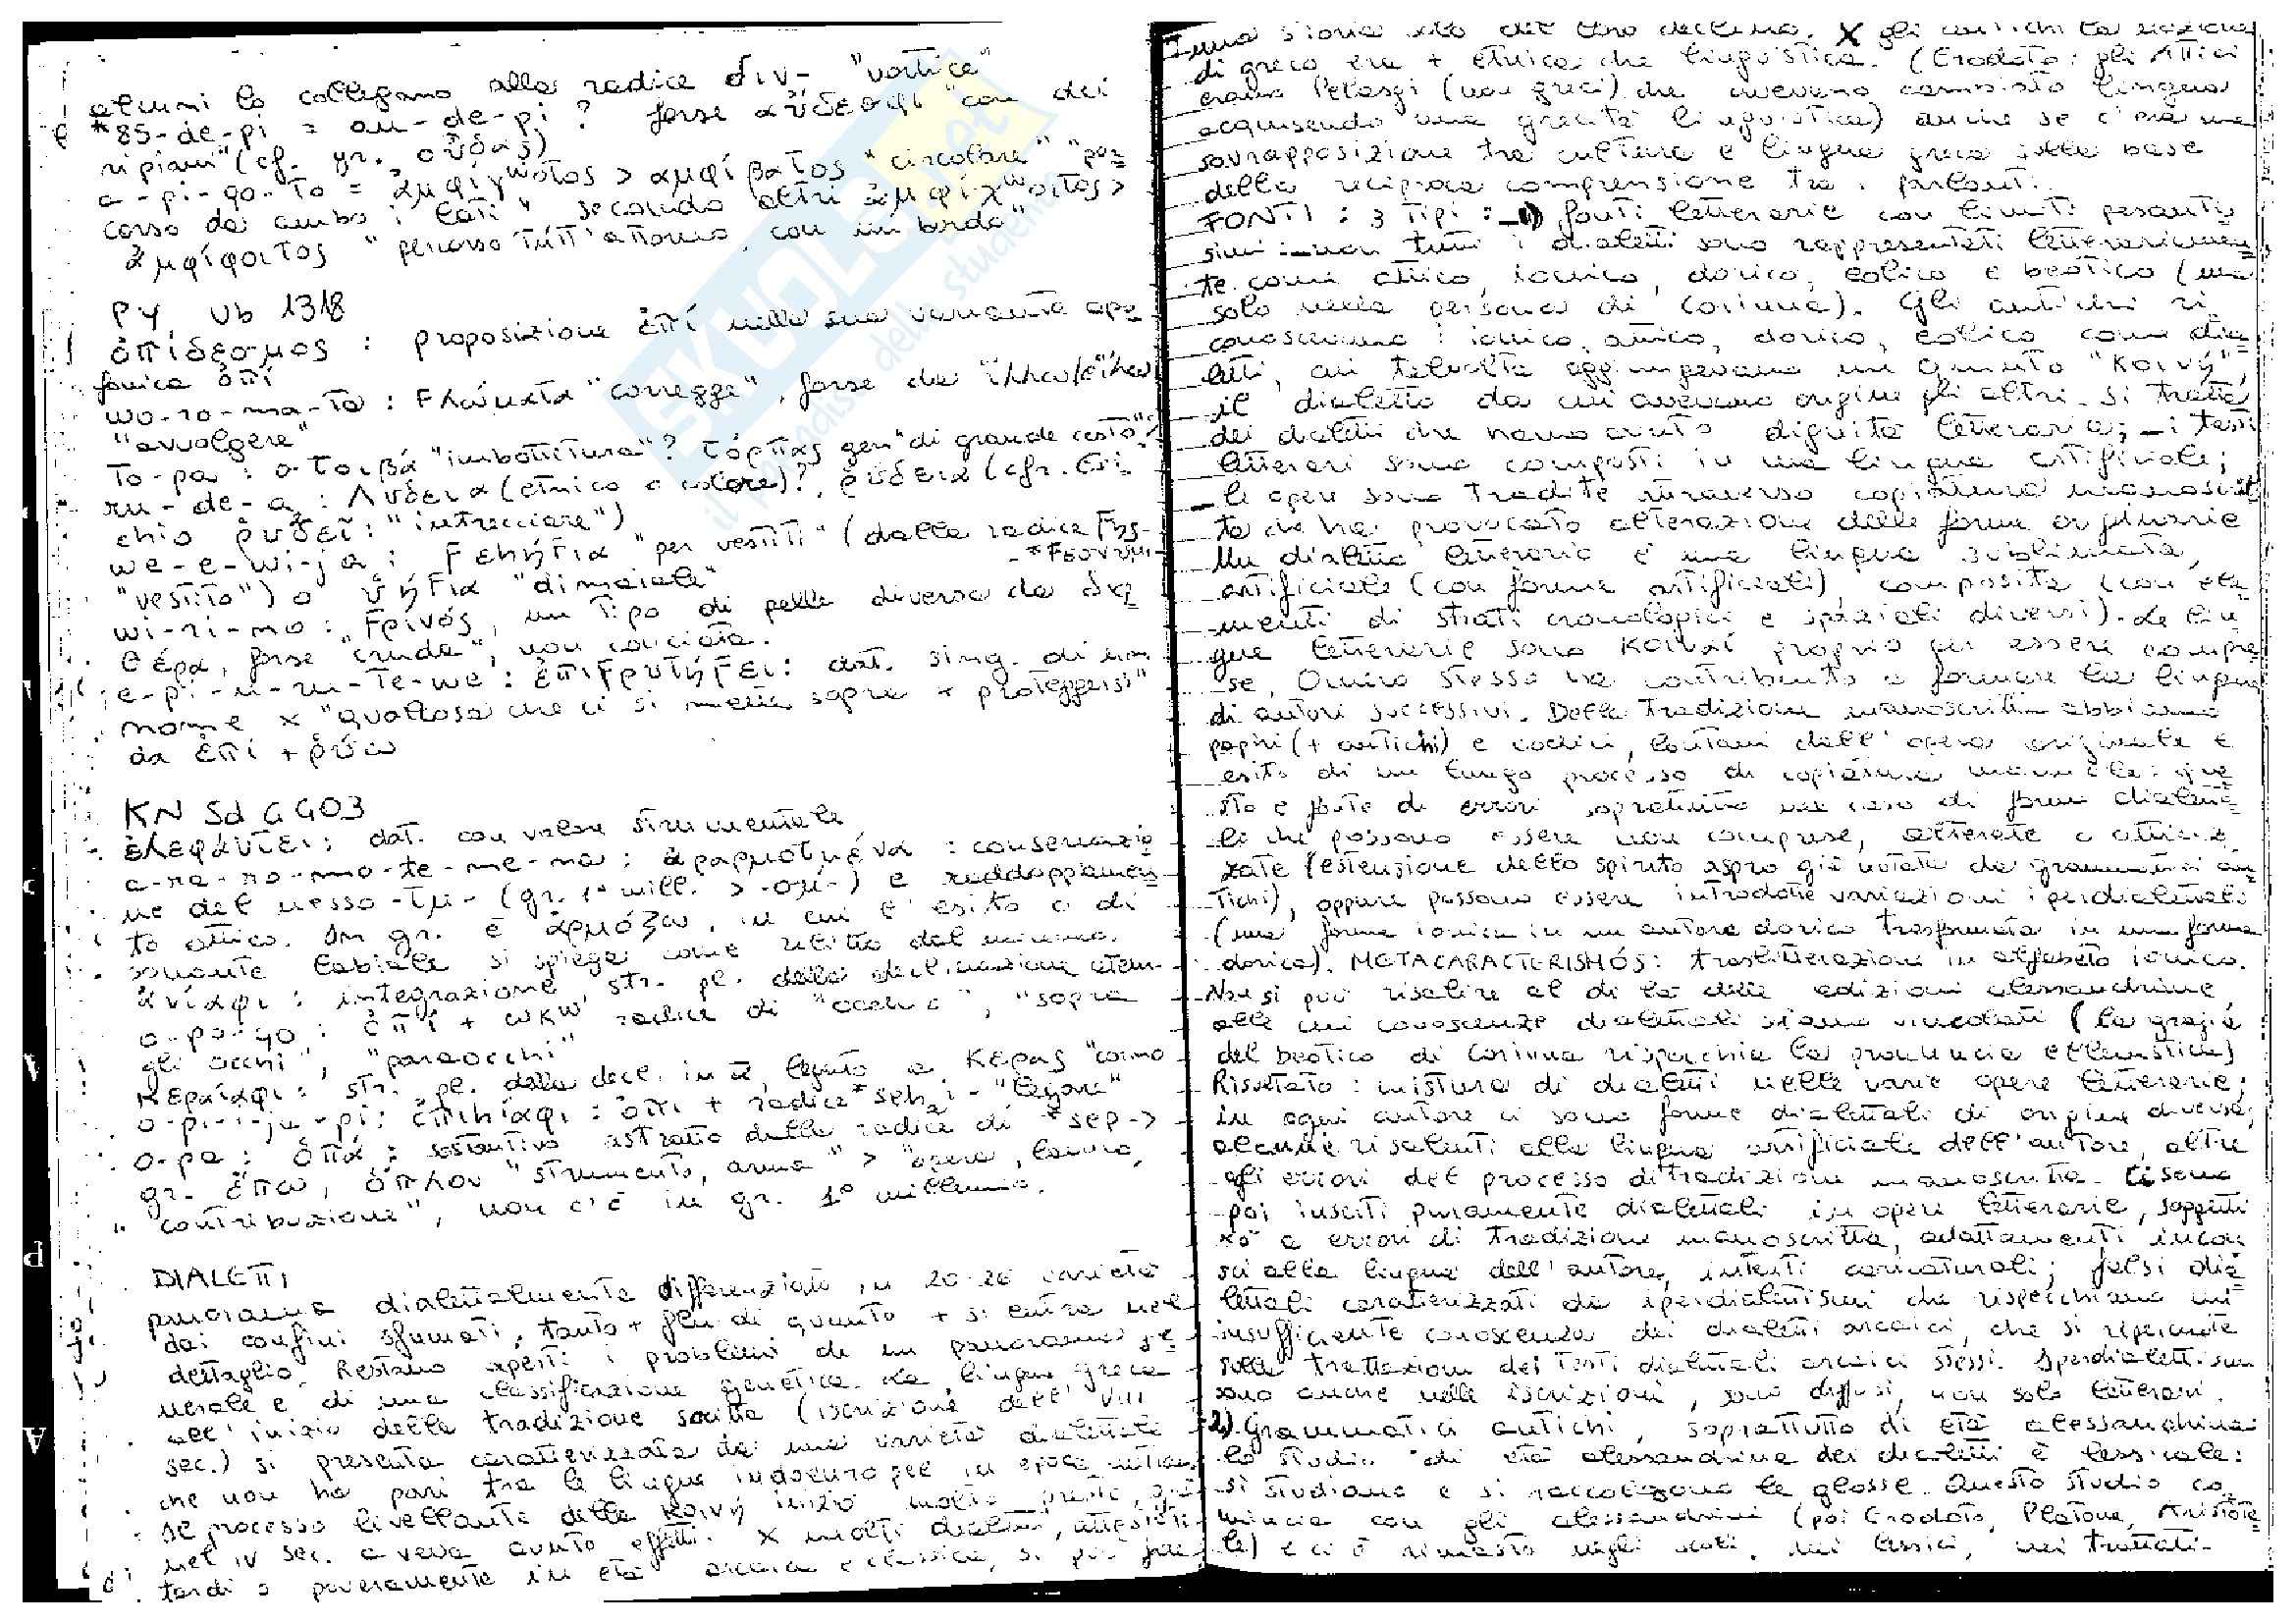 alcuni lo collegano alla radice διν- "vortice"
*85-de-pi = au-de-pi ? forse αὔδεσφι "con dei
ripiani" (cf. gr. οὖδας)
a-pi-qo-to = ἀμφίγʷοτος > ἀμφίβατος "circolare" "per
corso da ambo i lati", secondo altri ἀμφίχʷοιτος >
ἀμφίφοιτος "percorso tutt'attorno, con un bordo"
PY Ub 1318
ὀπίδεσμος : proposizione ἐπί nella sua variante apo
fonica ὀπί
wo-ro-ma-ta : "corregge", forse da
"avvolgere"
To-pa : στοιβά "imbottitura"? τόρπας gen "di grande cesto"?
ru-de-a₂ : Λυδεια (etnico o colore)?, ῥύδεια (cfr. Esi-
chio ῥυδεῖ: "intrecciare")
we-e-wi-ja : ϝεhήϝια "per vestiti" (dalla radice ϝης-
"vestito") o ὑήϝια "di maiale"
wi-ri-no : ϝρινός, un tipo di pelle diversa da διφ
θέρα, forse "cruda", non conciata.
e-pi-u-ru-te-we : ἐπιϝρυτήϝει : dat. sing. di un
nome x "qualcosa che ci si mette sopra x proteggersi"
da ἐπί + ῥύω
KN Sd 4403
ἐλεφάντει : dat. con valore strumentale
a-ra-ro-mo-te-me-na : ἀραρμοτμένα : conservazio
ne del nesso -τμ- (gr. 1° mill. > -σμ-) e raddoppiamen
to attico. In gr. è ἁρμόζω, in cui l'esito o di
sonante labiale si spiega come relitto dal miceneo.
ἀνίαφι : integrazione, str. pl. della declinazione atem-
o-po-qo : ὀπί + ωκʷ radice di "occhio", "sopra
gli occhi", "paraocchi"
κεραίαφι : str. pl. della decl. in ᾱ, legato a κέρας "corno"
o-pi-i-ja-pi : ὀπιhίαφι : ὀπι + radice *seh₂i- "legare"
o-pa : ὀπά : sostantivo astratto dalla radice di *sep- >
gr. ἕπω, ὅπλον "strumento, arma" > "opera, lavoro,
"contribuzione", non c'è in gr. 1° millennio.
DIALETTI
panorama dialettalmente differenziato in 20-26 varietà
dai confini sfumati, tanto + più di quanto + si entra nel
dettaglio. Restano aperti i problemi di un panorama ge
nerale e di una classificazione genetica. La lingua greca
all'inizio della tradizione scritta (iscrizione dell' VIII
sec.) si presenta caratterizzata da una varietà dialettale
che non ha pari tra le lingue indoeuropee in epoca antica
Il processo livellante della κοινή iniziò molto presto, già
nel IV sec. aveva avuto effetti. X molti dialetti, attestati
tardi o poveramente in età arcaica e classica, si può fare
una storia solo del loro declino. X gli antichi la nozione
di greco era + etnica che linguistica. (Erodoto: gli Attici
erano Pelasgi (non greci) che avevano cambiato lingua
acquisendo una grecità linguistica) anche se c'era una
sovrapposizione tra cultura e lingua greca sulla base
della reciproca comprensione tra i parlanti.
FONTI : 3 tipi : 1) fonti letterarie con limiti pesantis
simi - non tutti i dialetti sono rappresentati letterariamen
te come attico, ionico, dorico, eolico e beotico (ma
solo nella persona di Corinna). Gli antichi ri
conoscevano : ionico, attico, dorico, eolico come dia
letti, cui talvolta aggiungevano un quinto "κοινή",
il dialetto da cui avevano origine gli altri. Si tratta
dei dialetti che hanno avuto dignità letteraria; - i testi
letterari sono composti in una lingua artificiale;
- le opere sono tradite attraverso copiatura manoscrit
ta che ha provocato alterazione delle forme originarie
Un dialetto letterario è una lingua sublimata,
artificiale (con forme artificiali), composita (con ele
menti di strati cronologici e spaziali diversi). Le lin
gue letterarie sono κοιναί proprio per essere compre
se. Omero stesso ha contribuito a formare la lingua
di autori successivi. Della tradizione manoscritta abbiamo
papiri (+ antichi) e codici, lontani dall'opera originale e
esito di un lungo processo di copiatura manuale: que
sto è fonte di errori soprattutto nel caso di forme dialetta
li che possono essere non comprese, alterate o atticiz
zate (estensione dello spirito aspro già notata da grammatici an
tichi), oppure possono essere introdotte variazioni iperdialettali
(una forma ionica in un autore dorico trasformata in una forma
dorica). METACARACTERISMÓS: traslitterazione in alfabeto ionico.
Non si può risalire al di là delle edizioni alessandrine,
alle cui conoscenze dialettali siamo vincolati (la grafia
del beotico di Corinna rispecchia la pronuncia ellenistica)
Risultato : mistura di dialetti nelle varie opere letterarie;
in ogni autore ci sono forme dialettali di origine diversa,
alcune risalenti alla lingua artificiale dell'autore, altre
agli errori del processo di tradizione manoscritta. Ci sono
poi inserti puramente dialettali in opere letterarie, soggetti
xò a errori di tradizione manoscritta, adattamenti incon
sci alla lingua dell'autore, intenti caricaturali; falsi dia
lettali caratterizzati da iperdialettismi che rispecchiano un'
insufficiente conoscenza dei dialetti arcaici, che si ripercuote
sulla trattazione dei testi dialettali arcaici stessi. Iperdialettismi
sono anche nelle iscrizioni, sono diffusi, non solo letterari.
2) Grammatici antichi, soprattutto di età alessandrina
lo studio di età alessandrina dei dialetti è lessicale:
si studiano e si raccolgono le glosse. Questo studio co
mincia con gli alessandrini (poi Erodoto, Platone, Aristote
le) e ci è rimasto negli scoli, nei lessici, nei trattati-
SKUOLA.net
il paradiso dello studente